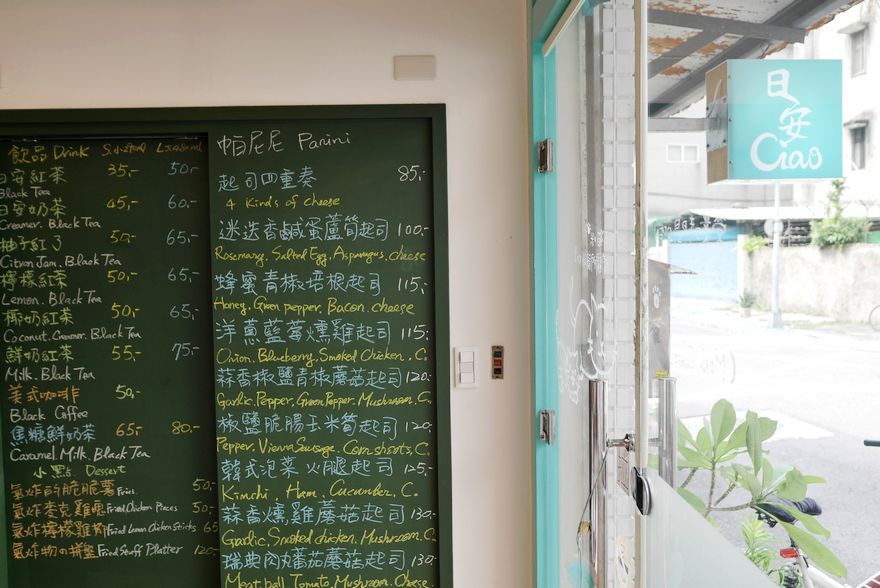 飲品 Drink S. L.
日安紅茶 35,- 50,-
Black Tea
日安奶茶 45,- 60,-
Creamer. Black Tea
柚子紅了 50,- 65,-
Citron Jam. Black Tea
檸檬紅茶 50,- 65,-
Lemon. Black Tea
椰奶紅茶 50,- 65,-
Coconut. Creamer. Black Tea
鮮奶紅茶 55,- 75,-
Milk. Black Tea
美式咖啡 50,-
Black Coffee
焦糖鮮奶茶 65,- 80,-
Caramel. Milk. Black Tea
小點 Dessert
氣炸的脆脆薯 Fries 50,-
氣炸麥克雞塊 Fried Chicken Pieces 50,-
氣炸檸檬雞柳 Fried Lemon Chicken Sticks 65
氣炸物の拼盤 Fried Stuff Platter 120,-
帕尼尼 Panini
起司四重奏 85,-
4 Kinds of cheese
迷迭香鹹蛋蘆筍起司 100,-
Rosemary, Salted Egg, Asparagus, cheese
蜂蜜青椒培根起司 115,-
Honey, Green pepper, Bacon, cheese
洋蔥藍莓燻雞起司 115,-
Onion, Blueberry, Smoked Chicken, C.
蒜香椒鹽青椒蘑菇起司 120,-
Garlic, Pepper, Green Pepper, Mushroom, C.
椒鹽脆腸玉米筍起司 120,-
Pepper, Vienna Sausage, Corn shoots, C.
韓式泡菜火腿起司 125,-
Kimchi, Ham, Cucumber, C.
蒜香燻雞蘑菇起司 130,-
Garlic, Smoked chicken, Mushroom, C.
瑞典肉丸蕃茄蘑菇起司 130,-
Meat ball, Tomato, Mushroom, Cheese
日安
Ciao